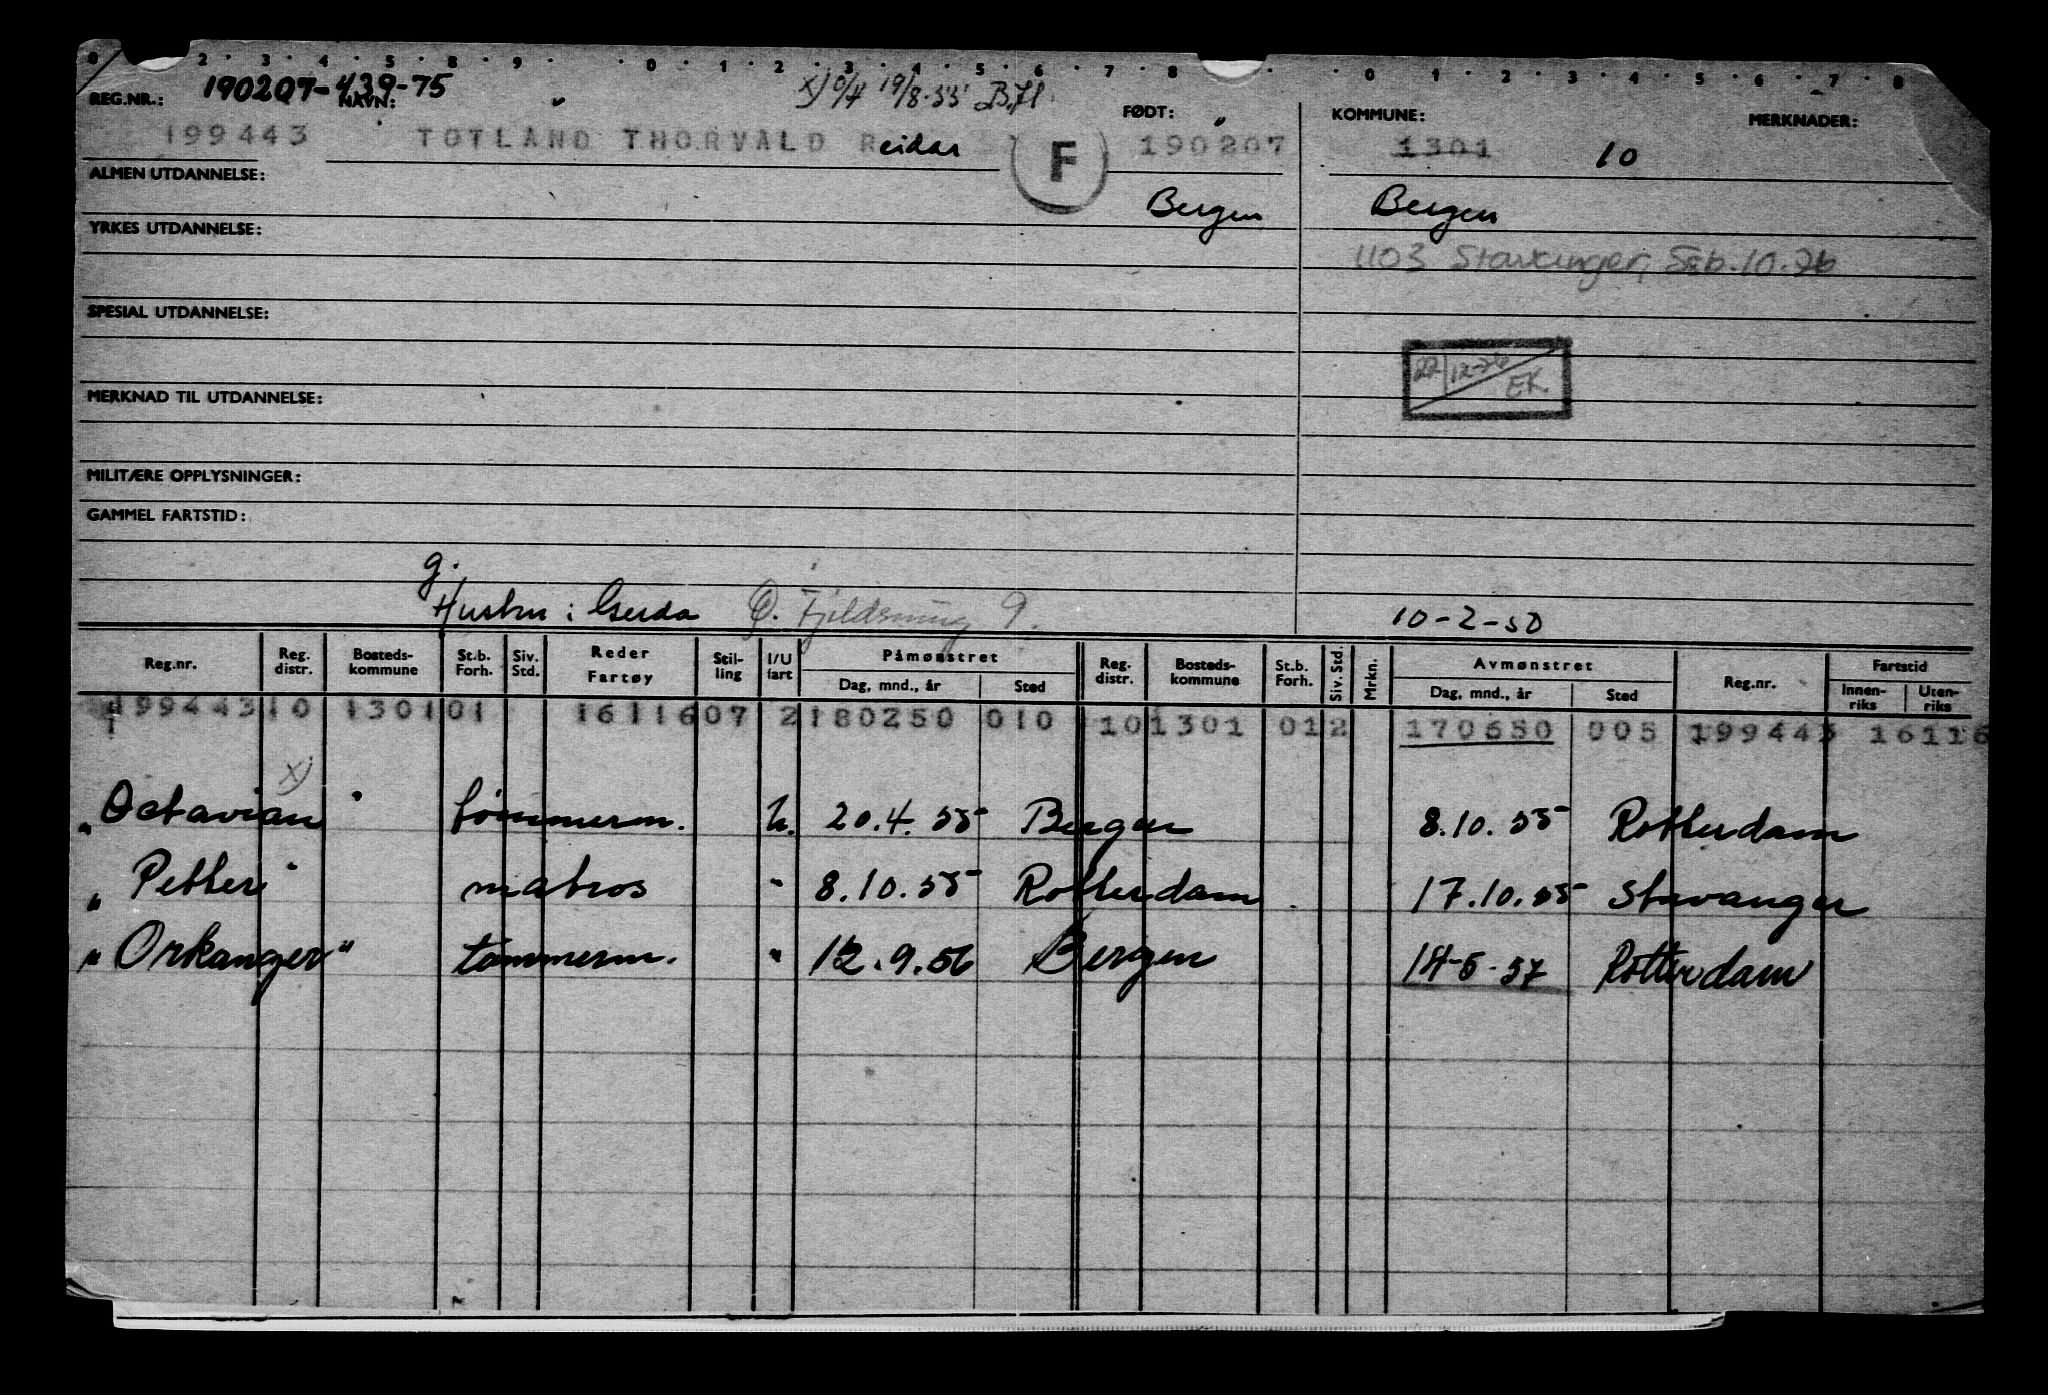 0 2 3 4 5 8 9 0 1 2 3 4 5 6 7 8 0 1 2 3 4 5 6 7 8
190207-439-75 x) 0/4 19/8-55 B.Jl
REG.NR.: NAVN: FØDT: KOMMUNE: MERKNADER:
199443 TOTLAND THORVALD Reidar F 190207 1301 10
ALMEN UTDANNELSE: Bergen Bergen
YRKES UTDANNELSE:
1103 Stavanger, Sab. 10.26
SPESIAL UTDANNELSE:
22/12-26 EK.
MERKNAD TIL UTDANNELSE:
MILITÆRE OPPLYSNINGER:
GAMMEL FARTSTID:
g.
Hustru: Gerda Ø. Fjeldsmug 9. 10-2-50
Reg.nr. Reg. distr. Bosteds-kommune St.b. Forh. Siv. Std. Reder Fartøy Stil-ling I/U fart Påmønstret Dag, mnd., år Sted Reg. distr. Bosteds-kommune St.b. Forh. Siv. Std. Mrkn. Avmønstret Dag, mnd., år Sted Reg.nr. Fartstid Innen-riks Uten-riks
199443 10 1301 01 16116 07 2 180250 010 10 1301 01 2 170650 005 199443 16116
x)
"Octavian" tømmerm. u. 20.4.55 Bergen 8.10.55 Rotterdam
"Petter" matros " 8.10.55 Rotterdam 17.10.55 Stavanger
"Orkanger" tømmerm. " 12.9.56 Bergen 14-5-57 Rotterdam